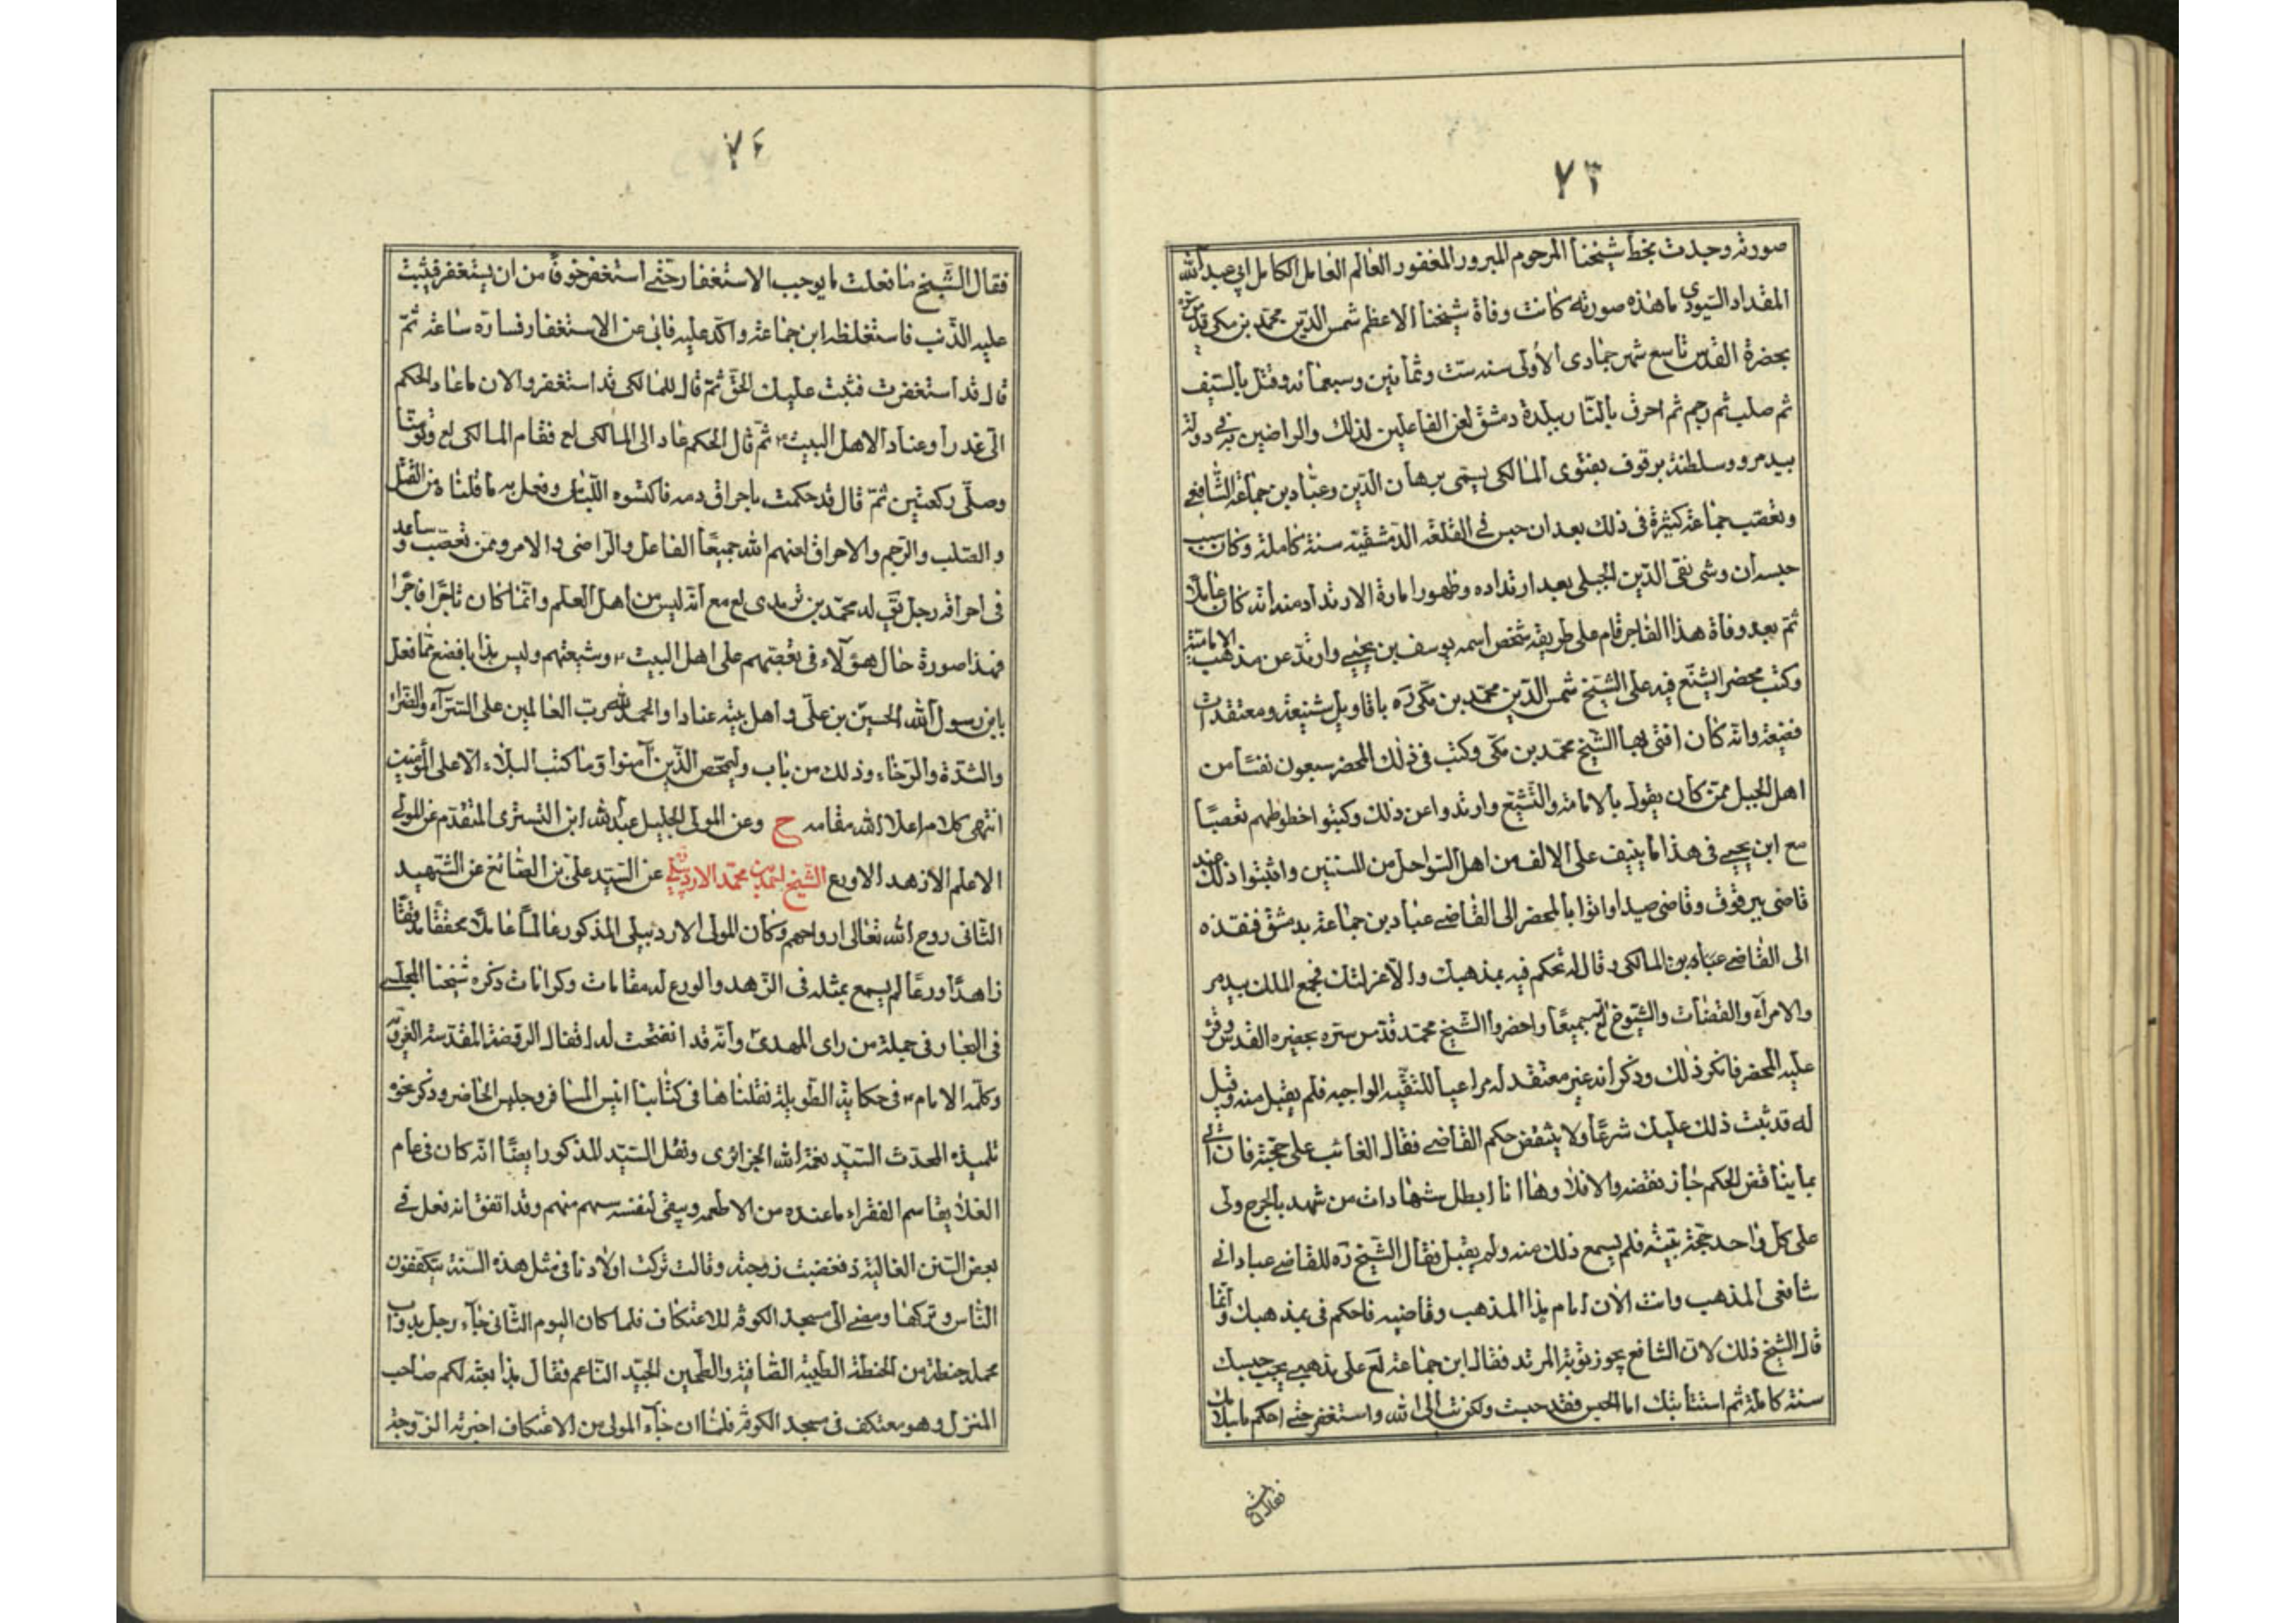 ٧٣
صورته وجدت بخط شيخنا المرحوم المبرور المغفور العالم العامل الكامل ابي عبد الله
المقداد السيوري ما هذه صورته كانت وفاة شيخنا الاعظم شمس الدين محمد بن مكي قدس سره
بحضرة القدس تاسع شهر جمادى الأولى سنه ست وثمانين وسبعمائه وقتل بالسيف
ثم صلب ثم رجم ثم احرق بالنار ببلدة دمشق لعن الفاعلين لذلك والراضين به في دولة
بيدمر وسلطنة برقوق بفتوى المالكي يسمى برهان الدين وعباد بن جماعة الشافعي
وتعصب جماعة كثيرة في ذلك بعد ان حبس في القلعة الدمشقية سنة كاملة وكان سبب
حبسه ان وشى تقي الدين الجبلي بعد ارتداده وظهور امارة الارتداد منه انه كان عاملا
ثم بعد وفاة هذا الفاجر قام على طريقه شخص اسمه يوسف بن يحيى وارتد عن مذهب الامامية
وكتب محضرا يشنع فيه على الشيخ شمس الدين محمد بن مكي ره باقاويل شنيعة ومعتقدات
فضيعة وانه كان افتى بها الشيخ محمد بن مكي وكتب في ذلك المحضر سبعون نفسا من
اهل الجبل ممن كان يقول بالامامة والتشيع وارتدوا عن ذلك وكتبوا خطوطهم تعصبا
مع ابن يحيى في هذا ما ينيف على الالف من اهل السواحل من المسنين واثبتوا ذلك عند
قاضي بيروت وقاضي صيدا واتوا بالمحضر الى القاضي عباد بن جماعة بدمشق فنفذه
الى القاضي عباه بن المالكي وقال له تحكم فيه بمذهبك والا عزلتك فجمع الملك بيدمر
والامراء والقضات والشيوخ لع جميعا واحضروا الشيخ محمد قدس سره بحضيره القدس وقرء
عليه المحضر فانكر ذلك وذكر انه غير معتقد له مراعيا للتقيه الواجبه فلم يقبل منه وقيل
له قد ثبت ذلك عليك شرعا ولا ينتقض حكم القاضي فقال الغائب على حجته فان اتى
بما يناقض الحكم جاز نقضه والا فلا وها انا ابطل شهادات من شهد بالجرح ولى
على كل واحد حجة بينة فلم يسمع ذلك منه ولم يقبل فقال الشيخ ره للقاضي عباد اني
شافعي المذهب وانت الان امام هذا المذهب وقاضيه فاحكم في بمذهبك وانما
قال الشيخ ذلك لان الشافعي يجوز توبة المرتد فقال ابن جماعة لع على مذهبي يجب حبسك
سنة كاملة ثم استتابتك اما الحبس فقد حبست ولكن تب الى الله واستغفر حتى احكم باسلامك
فقال الشيخ
٧٤
فقال الشيخ ما فعلت ما يوجب الاستغفار حتى استغفر خوفا من ان يستغفر فيثبت
عليه الذنب فاستغلظه ابن جماعة واكد عليه فابى عن الاستغفار فساره ساعة ثم
قال قد استغفرت فثبت عليك الحق ثم قال للمالكي قد استغفر والان ما عاد الحكم
الى غدرا وعنادا لاهل البيت ثم قال الحكم عاد الى المالكي لع فقام المالكي لع وتوضا
وصلى ركعتين ثم قال قد حكمت باحراق دمه فاكسوه اللباس وفعل به ما قلنا من القتل
والصلب والرجم والاحراق لعنهم الله جميعا الفاعل والراضى والامر وممن تعصب وساعد
في احراقه رجل يق له محمد بن ترمدي لع مع انه ليس من اهل العلم وانما كان تاجرا فاجرا
فهذا صورة حال هؤلاء في تعصبهم على اهل البيت وشيعتهم وليس هذا بافضع مما فعل
بابن رسول الله الحسين بن علي واهل بيته عنادا والحمد لله رب العالمين على السراء والضراء
والشدة والرخاء وذلك من باب وليمحص الذين آمنوا وما كتب البلاء الا على المؤمنين
انتهى كلامه اعلا الله مقامه ح وعن المولى الجليل عبد الله ابن التسترى المتقدم عن المولى
الاعلم الازهد الاورع الشيخ احمد بن محمد الاردبيلي عن السيد علي بن الصائغ عن الشهيد
الثاني روح الله تعالى ارواحهم وكان المولى الاردبيلي المذكور عالما عاملا محققا مدققا
زاهدا ورعا لم يسمع بمثله في الزهد والورع له مقامات وكرامات ذكره شيخنا المجلسي
في البحار في جملة من راى المهدي وانه قد انفتحت له اقفال الروضة المقدسة الغروية
وكلمه الامام في حكاية الطويلة نقلناها في كتابنا انيس المسافر وجليس الحاضر وذكر نحوه
تلميذه المحدث السيد نعمة الله الجزائري ونقل السيد المذكور ايضا انه كان في عام
الغلا يقاسم الفقراء ما عنده من الاطعمه ويبقى لنفسه سهم منهم وقد اتفق انه فعل في
بعض السنن الغالية ذ فغضبت زوجته وقالت تركت اولادنا في مثل هذه السنة يتكففون
الناس وتركها ومضى الى مسجد الكوفه للاعتكاف فلما كان اليوم الثاني جاء رجل بدواب
حملها حنطة من الحنطة الطيبة الصافية والطحين الجيد الناعم فقال هذا بعثه لكم صاحب
المنزل وهو معتكف في مسجد الكوفه فلما ان جاء المولى من الاعتكاف اخبرته الزوجة